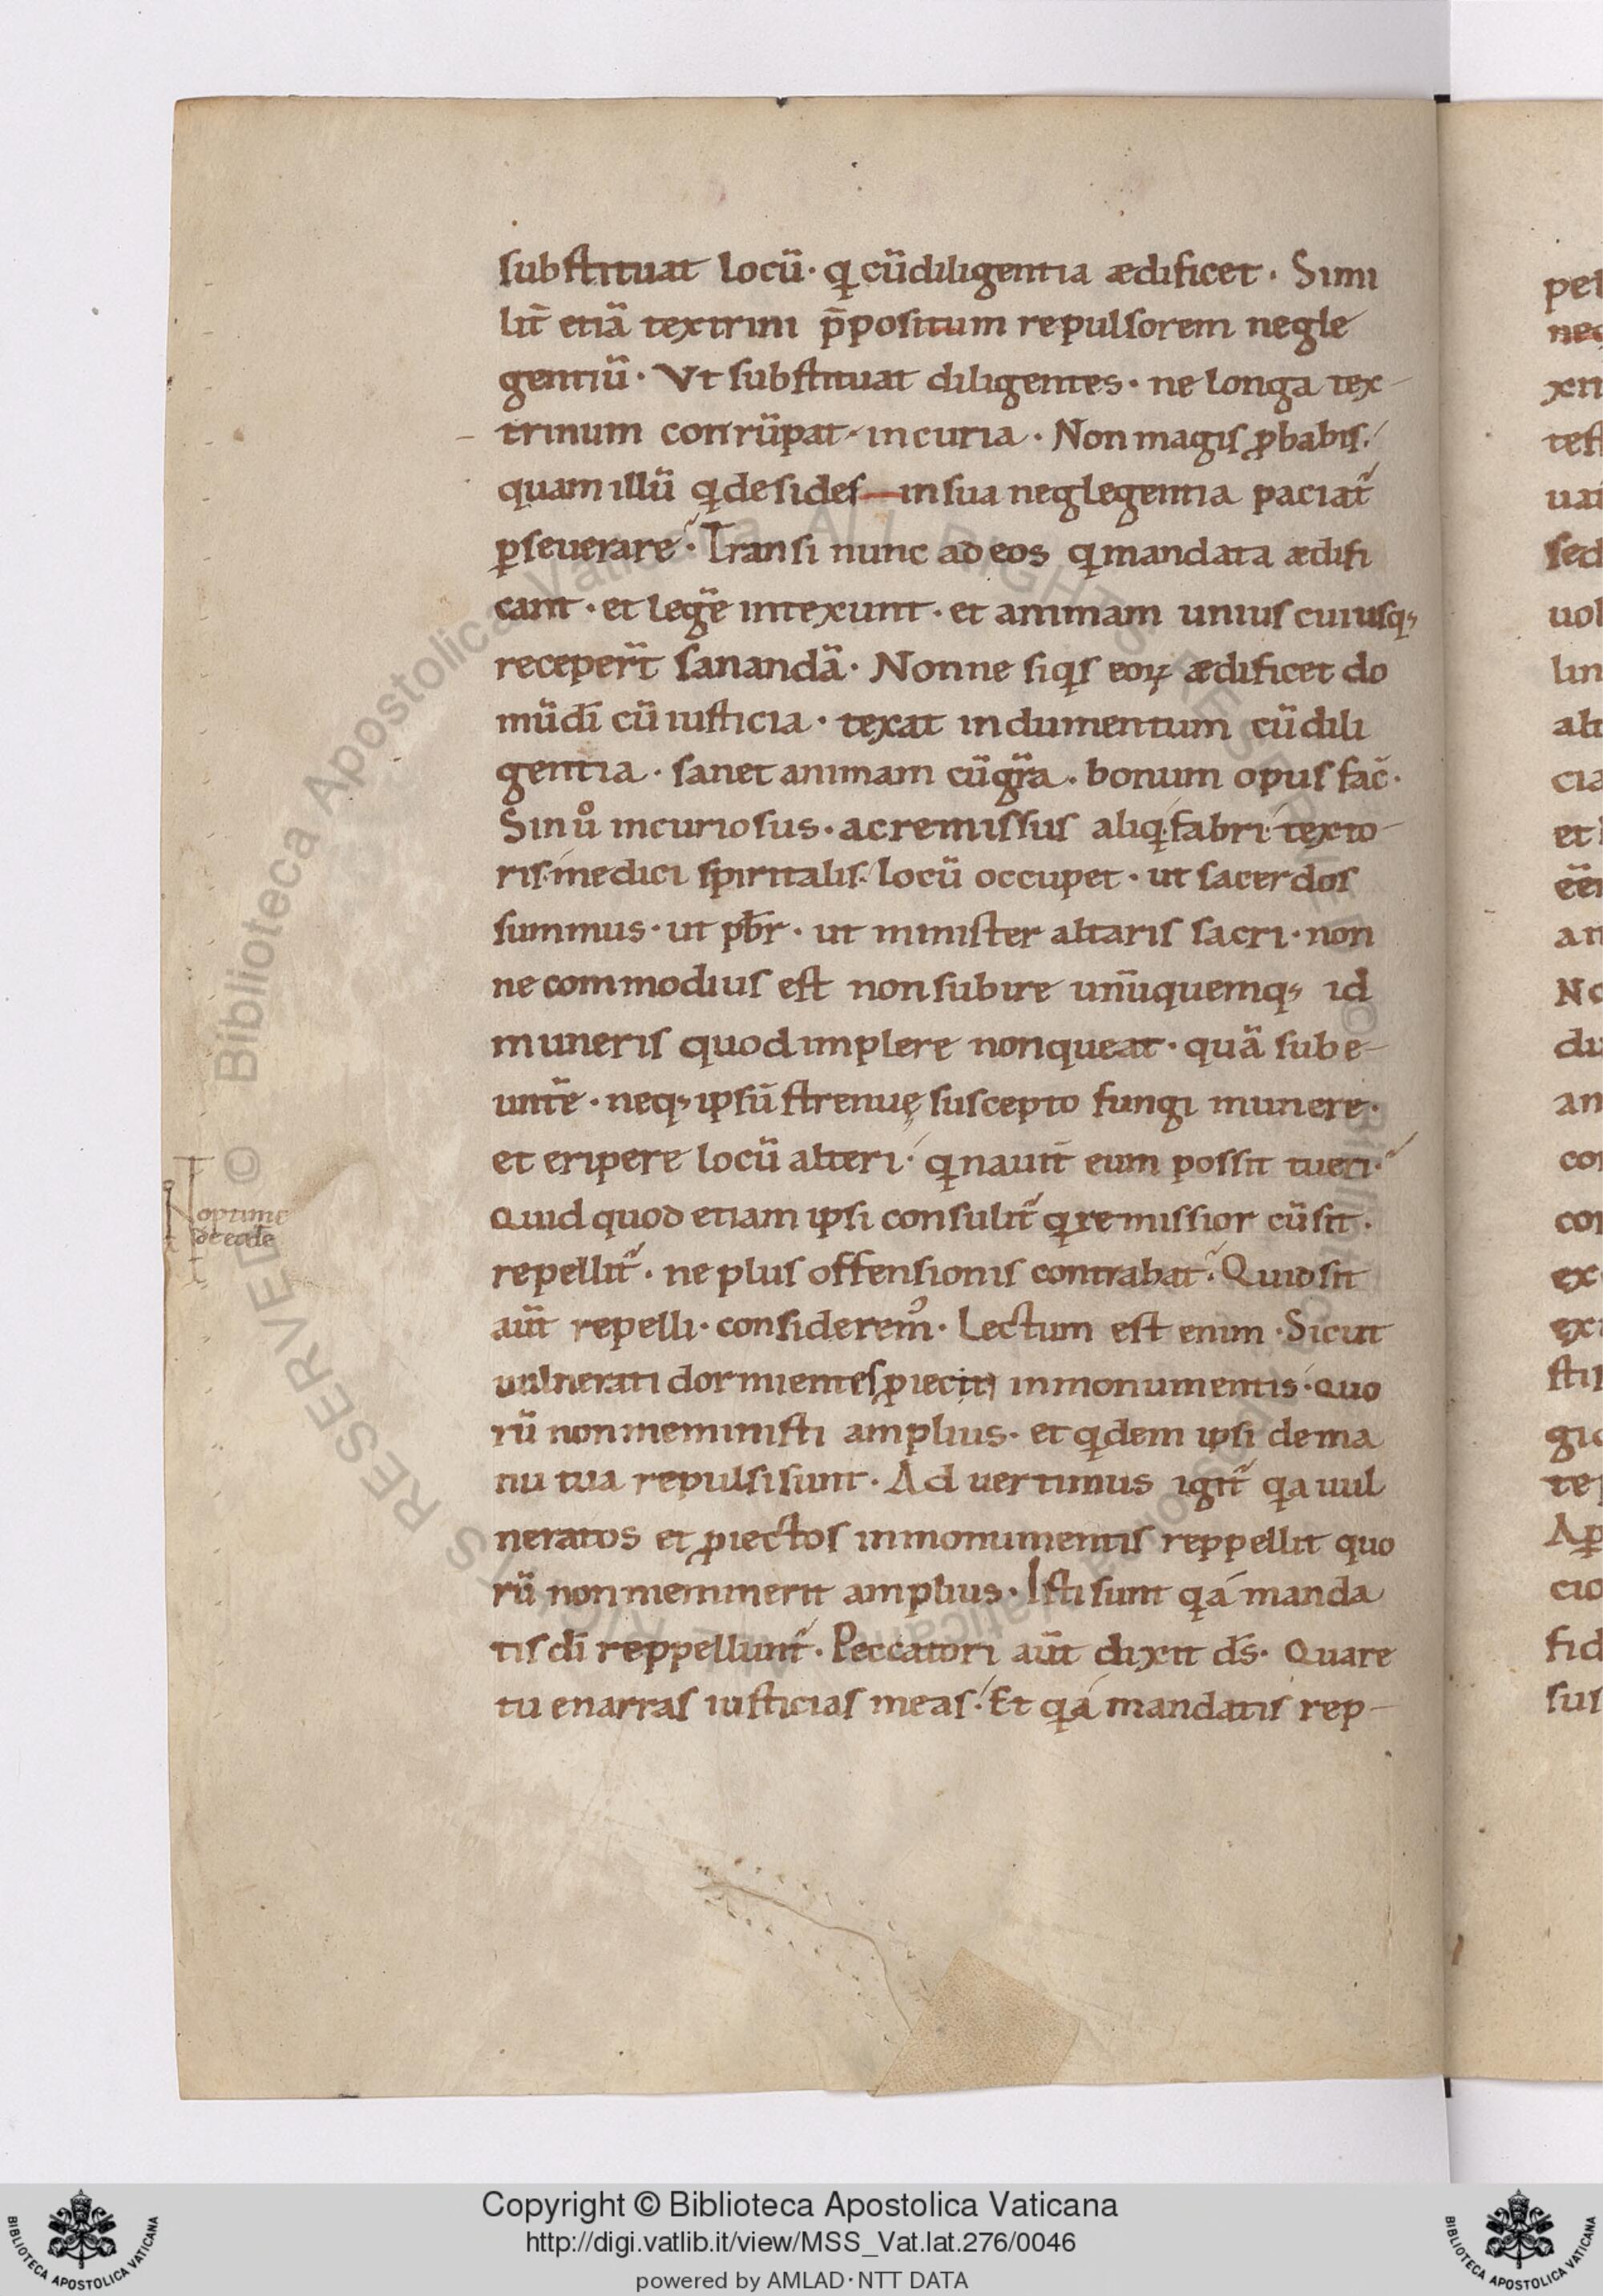 substituat locū· q cūdiligentia ædificet· Simi
lit̄ etiā textrini p̄positum repulsorem negle
gentiū· Vt substituat diligentes· ne longa tex-
trinum conrūpat· incuria· Non magis ꝓbabis·
quam illū q desides—in sua neglegentia paciat᷑
ꝑseuerare· Transi nunc ad eos q mandata ædifi
cant· et legē intexunt· et animam unius cuiusq;
recepert̄ sanandā· Nonne siqs eoꝝ ædificet do
mū dī cū iusticia· texat indumentum cū dili
gentia· sanet animam cū gr̄a· bonum opus fac̄·
Sin ůo incuriosus· ac remissus aliq· fabri· texto-
ris· medici spiritalis· locū occupet· ut sacerdos
summus· ut pb̄r· ut minister altaris sacri· non
ne commodius est non subire unūquemq; id
muneris quod implere nonqueat· quā sube-
untē· neq; ipsū strenuę suscepto fungi munere·
et eripere locū alteri· q nauit̄ eum possit tueri·
Quid quod etiam ipsi consulit᷑ q remissior cū sit·
repellit᷑· ne plus offensionis contrahat· Quid sit
aūt repelli· consideremꝰ· Lectum est enim· Sicut
uulnerati dormientes ꝓiecti inmonumentis· quo
rū non meministi amplius· et qdem ipsi de ma
nu tua repulsi sunt· Aduertimus igit᷑ qa uul
neratos et ꝓiectos inmonumentis reppellit quo
rū non meminerit amplius· Isti sunt q á manda
tis dī reppellunt᷑· Peccatori aūt dixit ds̄· Quare
tu enarras iusticias meas· Et q á mandatis rep-
N optime
Copyright © Biblioteca Apostolica Vaticana
http://digi.vatlib.it/view/MSS_Vat.lat.276/0046
powered by AMLAD·NTT DATA
BIBLIOTECA APOSTOLICA VATICANA
BIBLIOTECA APOSTOLICA VATICANA